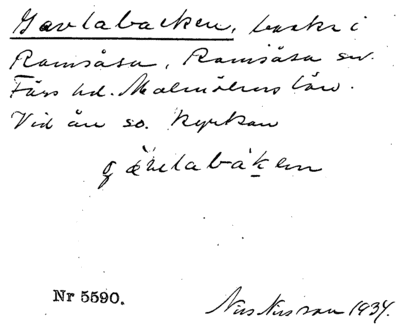 Gavlabacken, backe i
Ramsåsa, Ramsåsa sn.
Färs hd. Malmöhus län.
Vid ån so. kyrkan
Nr 5590.
Nils Nilsson 1934.